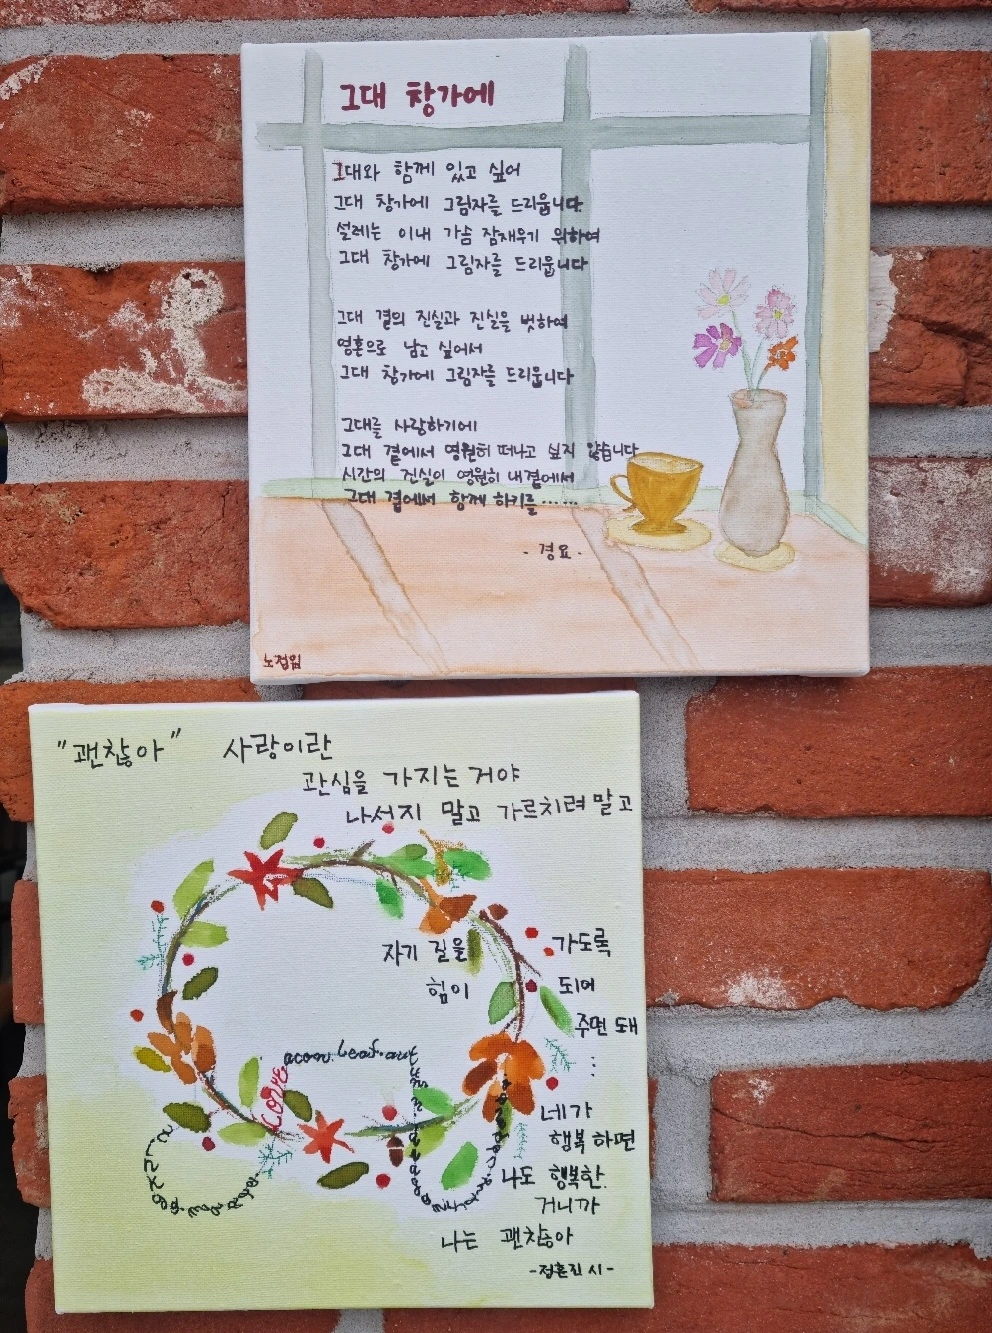 그대 창가에
그대와 함께 있고 싶어
그대 창가에 그림자를 드리웁니다
설레는 이내 가슴 잠재우기 위하여
그대 창가에 그림자를 드리웁니다
그대 곁의 진실과 진실을 벗하여
영혼으로 남고 싶어서
그대 창가에 그림자를 드리웁니다
그대를 사랑하기에
그대 곁에서 영원히 떠나고 싶지 않습니다
시간의 진실이 영원히 내곁에서
그대 곁에서 함께 하기를……
- 경요 -
노점임
"괜찮아" 사랑이란
관심을 가지는 거야
나서지 말고 가르치려 말고
자기 길을 가도록
힘이 되어
주면 돼
⋮
네가
행복 하면
나도 행복한
거니까
나는 괜찮아
-정훈진 시-
acorn. leaf. and
Love